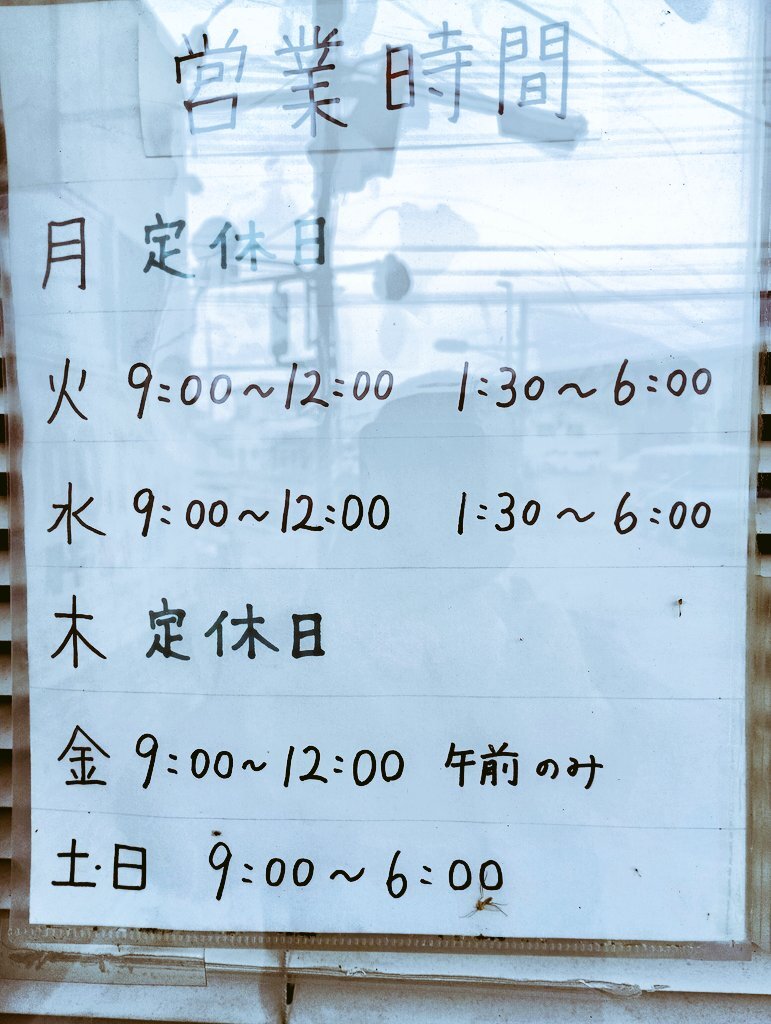 営業時間
月 定休日
火 9:00~12:00 1:30~6:00
水 9:00~12:00 1:30~6:00
木 定休日
金 9:00~12:00 午前のみ
土・日 9:00~6:00